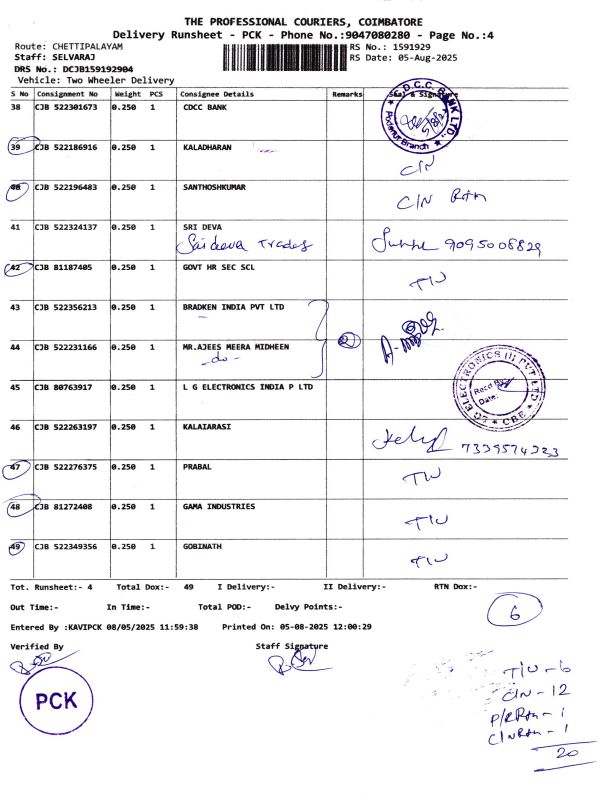 THE PROFESSIONAL COURIERS, COIMBATORE
Delivery Runsheet - PCK - Phone No.:9047080280 - Page No.:4
Route: CHETTIPALAYAM RS No.: 1591929
Staff: SELVARAJ RS Date: 05-Aug-2025
DRS No.: DCJB159192904
Vehicle: Two Wheeler Delivery
S No Consignment No Weight PCS Consignee Details Remarks Seal & Signature
38 CJB 522301673 0.250 1 CDCC BANK
D.C.C. BANK LTD. Podanur Branch
39 CJB 522186916 0.250 1 KALADHARAN
C/N
40 CJB 522196483 0.250 1 SANTHOSHKUMAR
C/N Rtn
41 CJB 522324137 0.250 1 SRI DEVA
Sri deva Trades 9095008829
42 CJB 81187405 0.250 1 GOVT HR SEC SCL
T/U
43 CJB 522356213 0.250 1 BRADKEN INDIA PVT LTD
2
44 CJB 522231166 0.250 1 MR.AJEES MEERA MIDHEEN
-do-
45 CJB 80763917 0.250 1 L G ELECTRONICS INDIA P LTD
LG ELECTRONICS (I) PVT LTD CBE
Recd By:
Date:
46 CJB 522263197 0.250 1 KALAIARASI
47 CJB 522276375 0.250 1 PRABAL
T/U
48 CJB 81272408 0.250 1 GAMA INDUSTRIES
T/U
49 CJB 522349356 0.250 1 GOBINATH
T/U
Tot. Runsheet:- 4 Total Dox:- 49 I Delivery:- II Delivery:- RTN Dox:-
Out Time:- In Time:- Total POD:- Delvy Points:-
6
Entered By :KAVIPCK 08/05/2025 11:59:38 Printed On: 05-08-2025 12:00:29
Verified By Staff Signature
PCK
T/U - 6
C/N - 12
P/R Rtn - 1
C/N Rtn - 1
20